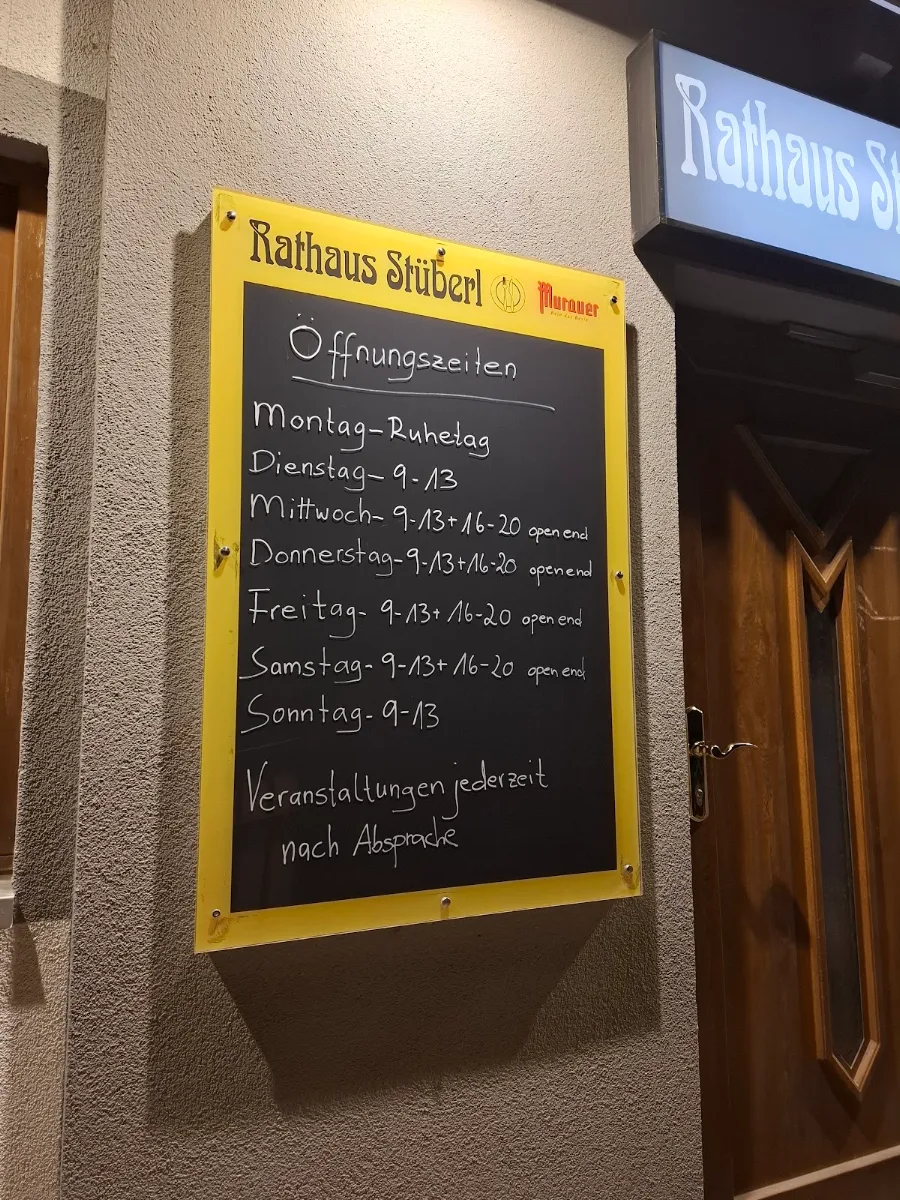 Rathaus St
Rathaus Stüberl Murauer
Öffnungszeiten
Montag-Ruhetag
Dienstag- 9-13
Mittwoch- 9-13+16-20 open end
Donnerstag-9-13+16-20 open end
Freitag- 9-13+ 16-20 open end
Samstag- 9-13+ 16-20 open end
Sonntag- 9-13
Veranstaltungen jederzeit
nach Absprache